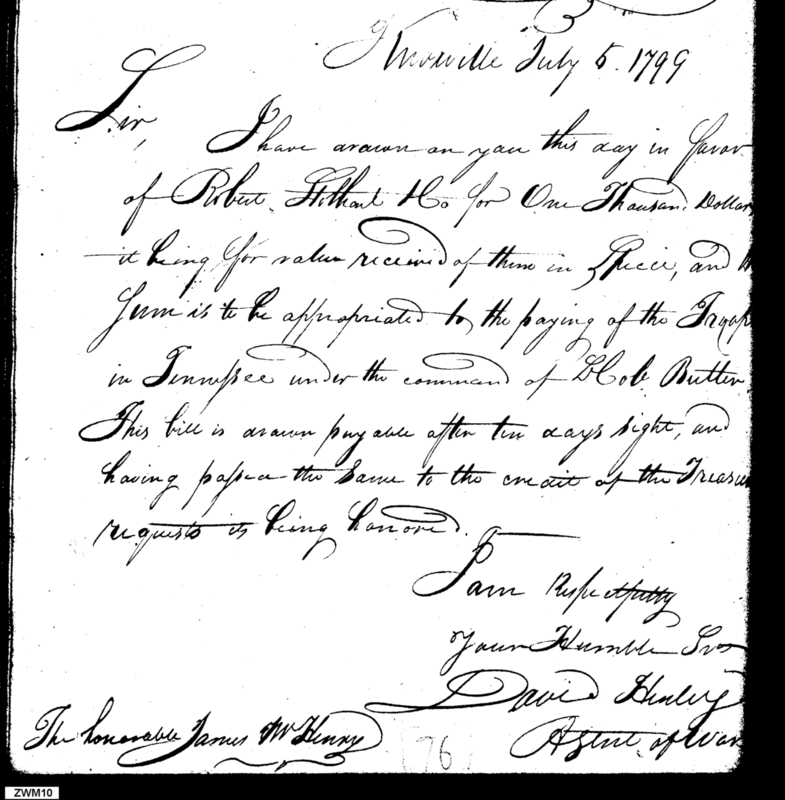 Knoxville July 5. 1799
Sir,
I have drawn on you this day in favor
of Robert & Co for One Thousand Dollars
it being for value received of them in Specie, and
Sum is to be appropriated to the paying of the Troops
in Tennessee under the command of Butler.
This bill is drawn payable after ten days sight, and
having passed the same to the credit of the Treasu
requests its being honored.
I am Respectfully
Your Humble Svt
David Henley
Agent of War
The honorable James McHenry
76
ZWM10